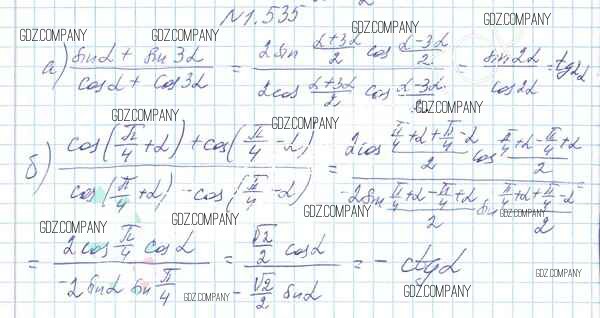 №1.535
GDZ.COMPANY GDZ.COMPANY GDZ.COMPANY
а) (sinα + sin3α)/(cosα + cos3α) = (2sin (α+3α)/2 cos (α-3α)/2)/(2cos (α+3α)/2 cos (α-3α)/2) = sin2α/cos2α = tg2α
GDZ.COMPANY GDZ.COMPANY GDZ.COMPANY
GDZ.COMPANY GDZ.COMPANY
б) (cos(π/4 + α) + cos(π/4 - α))/(cos(π/4 + α) - cos(π/4 - α)) = (2cos (π/4 + α + π/4 - α)/2 cos (π/4 + α - π/4 + α)/2)/(-2sin (π/4 + α - π/4 + α)/2 sin (π/4 + α + π/4 - α)/2)
GDZ.COMPANY GDZ.COMPANY GDZ.COMPANY GDZ.COMPANY
= (2cos π/4 cosα)/(-2sinα sin π/4) = (√2/2 cosα)/(-√2/2 sinα) = -ctgα
GDZ.COMPANY GDZ.COMPANY GDZ.COMPANY